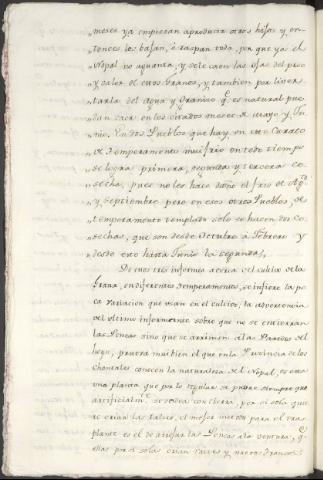 „meses ya empiezan a producir otros hijos y en-
„tonces los bajan, ò raspan todo, por que ya el
„Nopal no aguanta, y se le caen las ojas del peso
„y calor de otros granos, y tambien por liver-
„tarla del agua y Granizo q.e es natural pue-
„dan caer en los citados meses de mayo y Ju-
„nio. En dos Pueblos que hay en este Curato
„de temperamento mui frio en todo tiempo
„se logra primera, segunda y tercera co-
„secha, pues no les hace daño el frio de Ag.to
„y Septiembre pero en esos otros Pueblos, de
„temperamento templado solo se hacen dos co-
„sechas, que son desde Octubre à Febrero y
„desde este hasta Junio la segunda.„
De estos tres informes acerca del cultivo de la
Grana, en diferentes temperamentos, se infiere la po-
ca variacion que usan en el cultivo, la advertencia
del ultimo informante sobre que no se entierran
las Pencas sino que se arrimen à las Paredes del
, prueva mui bien el que en la Provincia de los
chontales conocen la naturaleza del Nopal, es esta
una planta que por lo regular se pudre siempre que
artificialm.te se desea con tierra, por si sola que
se crian las raices, el mejor metodo para el tras-
plante es el de arrojar las Pencas à la ventura, q.e
ellas por si solas crian raices y nuevos